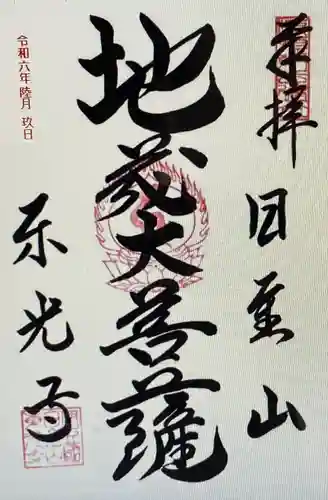 奉拝
日金山
地蔵大菩薩
令和六年陸月玖日
東光寺